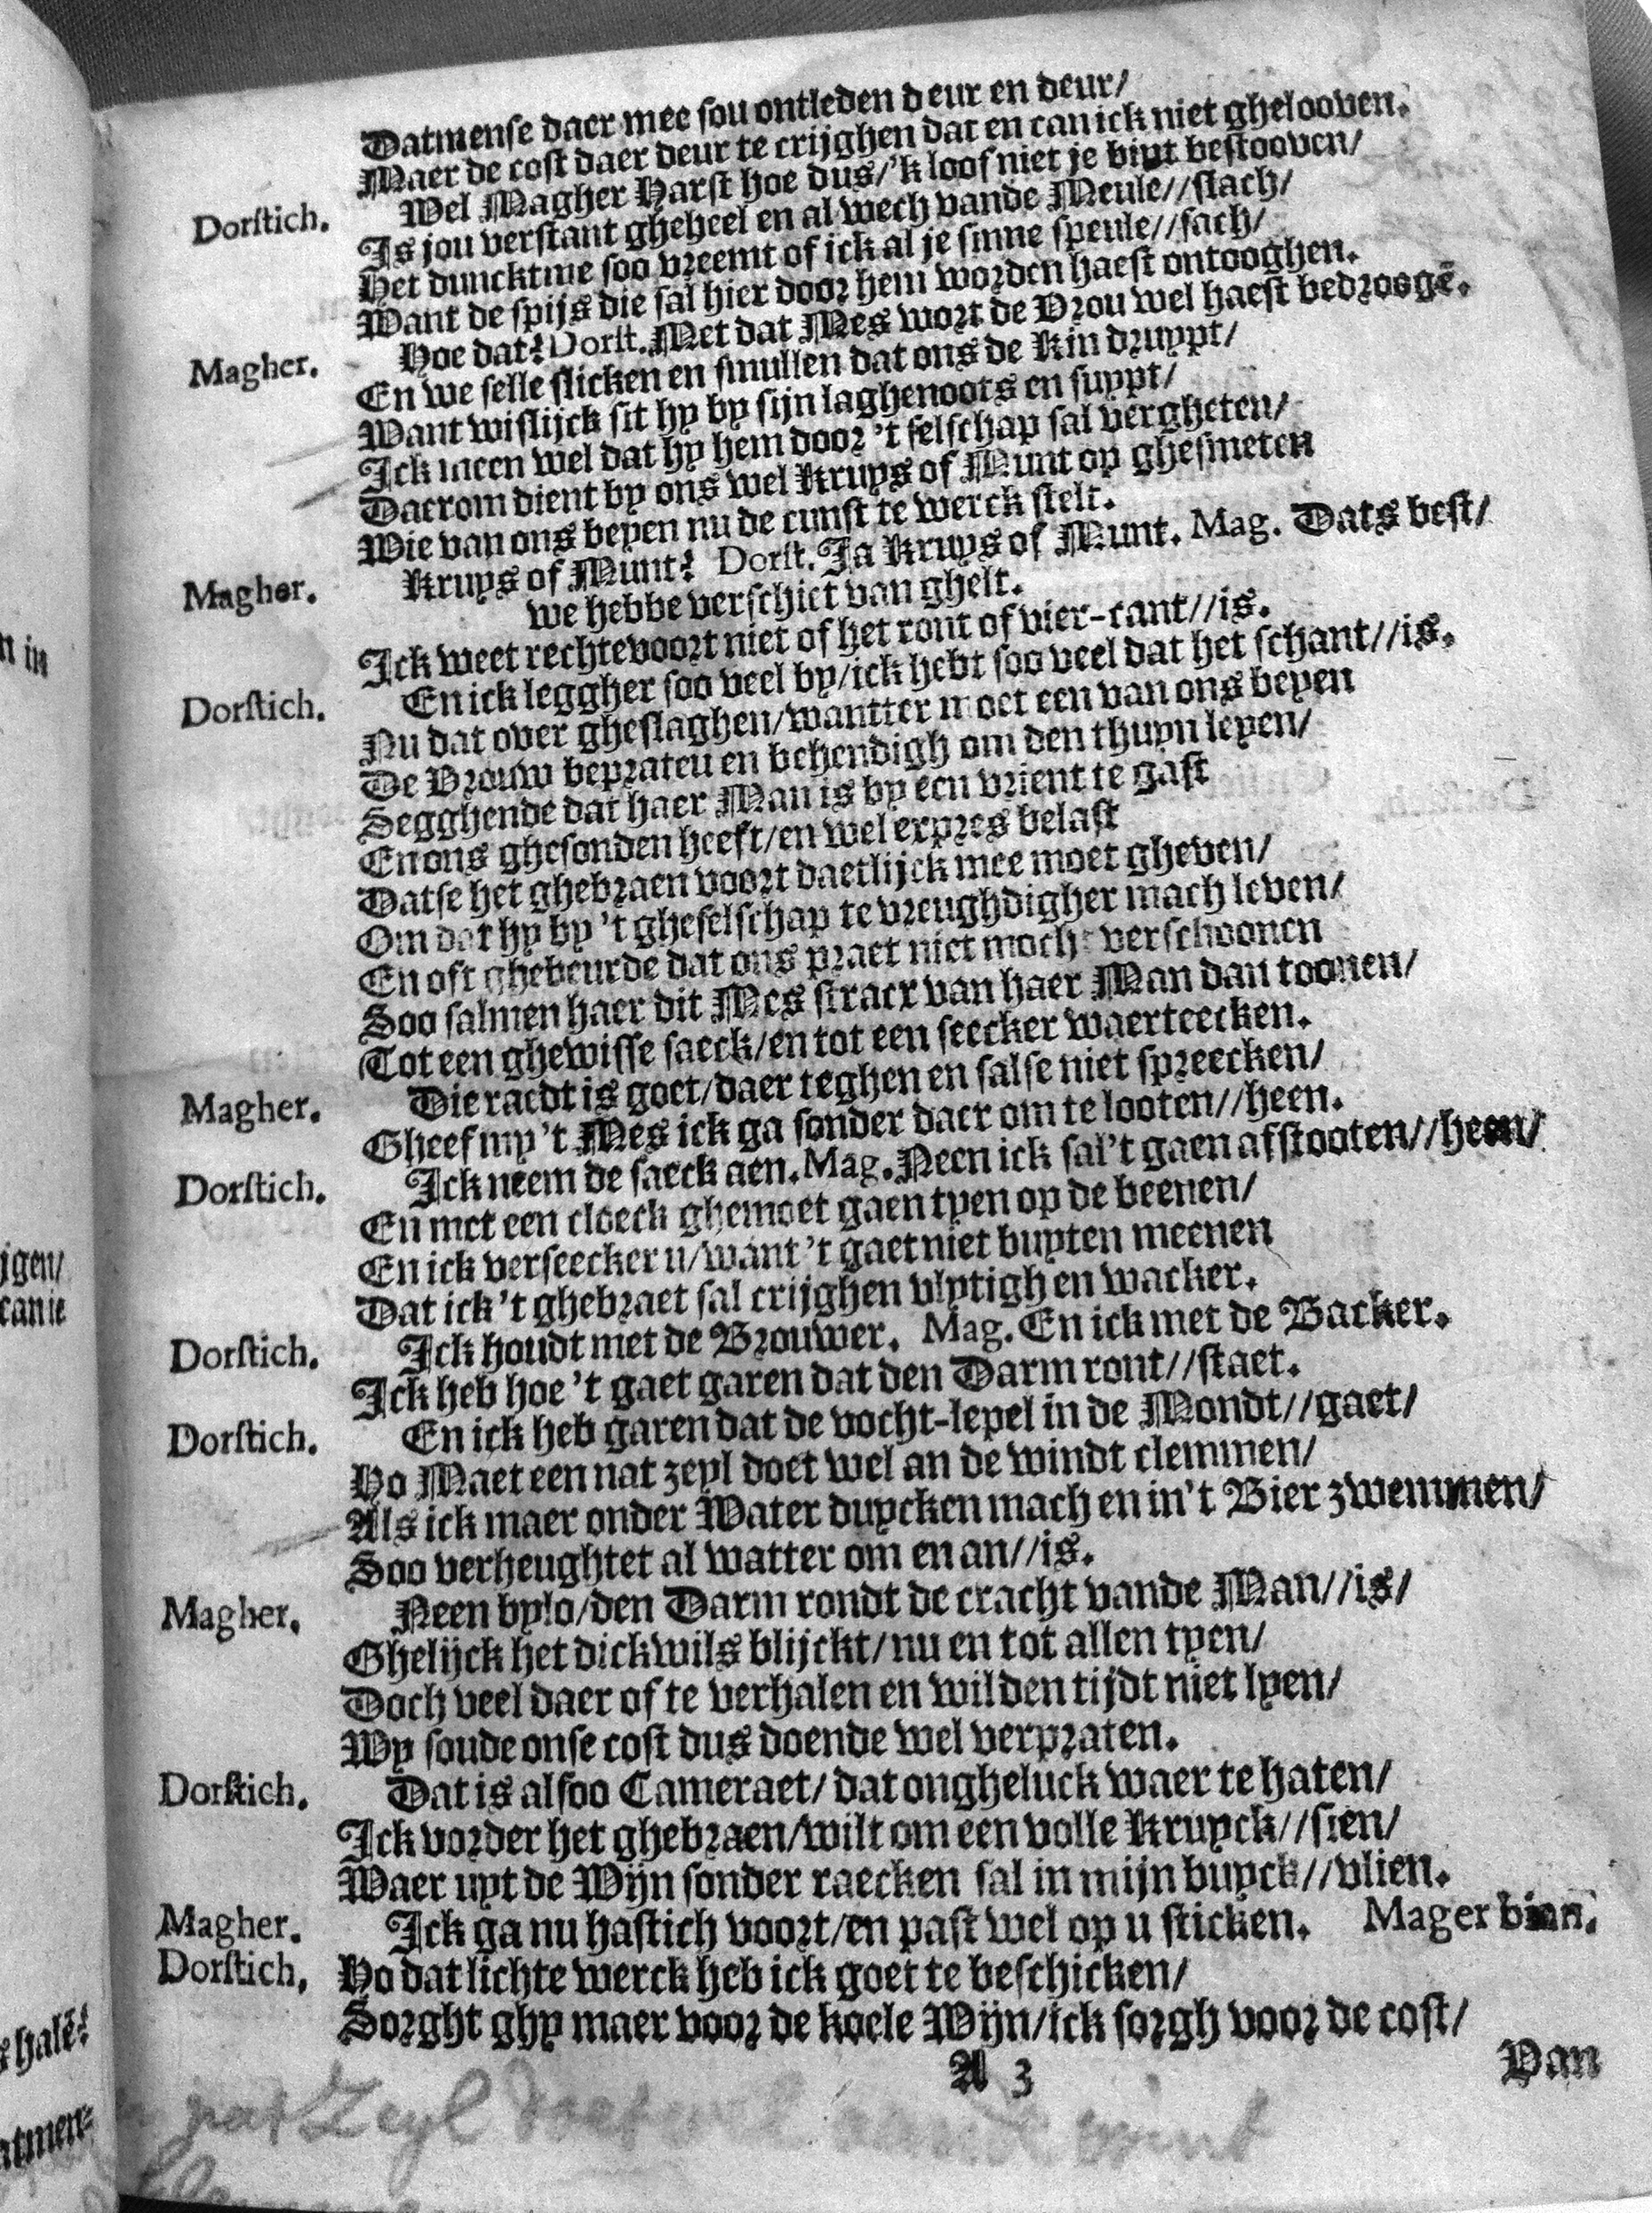 Datmense daer mee sou ontleden deur en deur/
Maer de cost daer deur te crijghen dat en can ick niet ghelooven.
Dorstich. Wel Magher Harst hoe dus/'k loof niet je bint bestooven/
Is jou verstant gheheel en al wech vande Meule//slach/
Het dunckt me soo vreemt of ick al je sinne speule//sach/
Want de spijs die sal hier door hem worden haest ontooghen.
Magher. Hoe dat? Dorst. Met dat Mes wort de Vrou wel haest bedroogē.
En we selle slicken en smullen dat ons de Kin druypt/
Want wislijck sit hy by sijn laghenoots en suypt/
Ick meen wel dat hy hem door 't selschap sal vergheten/
Daerom dient by ons wel Kruys of Munt op ghesmeten
Wie van ons beyen nu de cunst te werck stelt.
Magher. Kruys of Munt? Dorst. Ja Kruys of Munt. Mag. Dats best/
we hebbe verschiet van ghelt.
Ick weet rechtevoort niet of het ront of vier-cant//is.
Dorstich. En ick leggher soo veel by/ick hebt soo veel dat het schant//is.
Nu dat over gheslaghen/wantter moet een van ons beyen
De Vrouw bepraten en behendigh om den thuyn leyen/
Segghende dat haer Man is by een vrient te gast
En ons ghesonden heeft/en wel expres belast
Datse het ghebraen voort daetlijck mee moet gheven/
Om dat hy by 't gheselschap te vreughdigher mach leven/
En oft ghebeurde dat ons praet niet mocht verschoonen
Soo salmen haer dit Mes stracx van haer Man dan toonen/
Tot een ghewisse saeck/en tot een seecker waerteecken.
Magher. Die raedt is goet/daer teghen en salse niet spreecken/
Gheef my 't Mes ick ga sonder daer om te looten//heen.
Dorstich. Ick neem de saeck aen. Mag. Neen ick sal't gaen afstooten//heen/
En met een cloeck ghemoet gaen tyen op de beenen/
En ick verseecker u/want 't gaet niet buyten meenen
Dat ick 't ghebraet sal crijghen vlytigh en wacker.
Dorstich. Ick houdt met de Brouwer. Mag. En ick met de Backer.
Ick heb hoe 't gaet garen dat den Darm ront//staet.
Dorstich. En ick heb garen dat de vocht-lepel in de Mondt//gaet/
Ho Maet een nat zeyl doet wel an de windt clemmen/
Als ick maer onder Water duycken mach en in't Bier zwemmen/
Soo verheughtet al watter om en an//is.
Magher. Neen bylo/den Darm rondt de cracht vande Man//is/
Ghelijck het dickwils blijckt/nu en tot allen tyen/
Doch veel daer of te verhalen en wil den tijdt niet lyen/
Wy soude onse cost dus doende wel verpraten.
Dorstich. Dat is alsoo Cameraet/dat ongheluck waer te haten/
Ick vorder het ghebraen/wilt om een volle Kruyck//sien/
Waer uyt de Wijn sonder raecken sal in mijn buyck//vlien.
Magher. Ick ga nu hastich voort/en past wel op u sticken. Mager binn.
Dorstich. Ho dat lichte werck heb ick goet te beschicken/
Sorght ghy maer voor de koele Wijn/ick sorgh voor de cost/
A 3
Van
nat Zeyl doet wel aan de wint